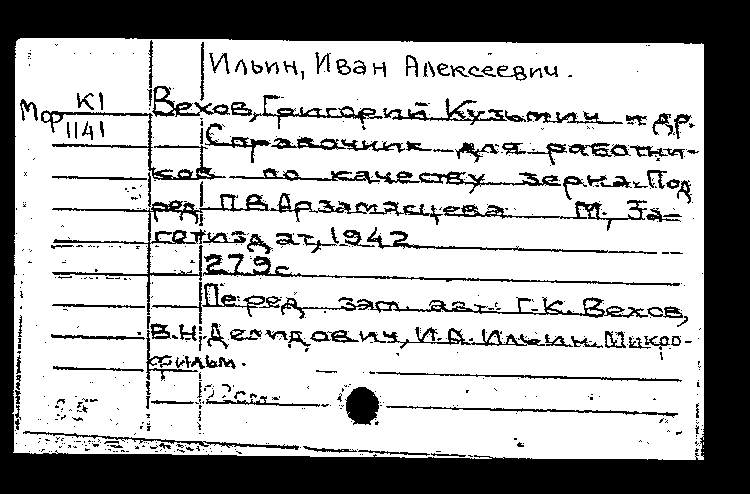 Ильин, Иван Алексеевич.
К1
Вехов, Григорий Кузьмич и др.
Мфр 1141
Справочник для работни-
ков по качеству зерна. Под
ред. П.В. Арзамасцева М., За-
готиздат, 1942
279с.
Перед заг. авт.: Г.К. Вехов,
В.Н. Демидович, И.А. Ильин. Микро-
фильм.
22см.